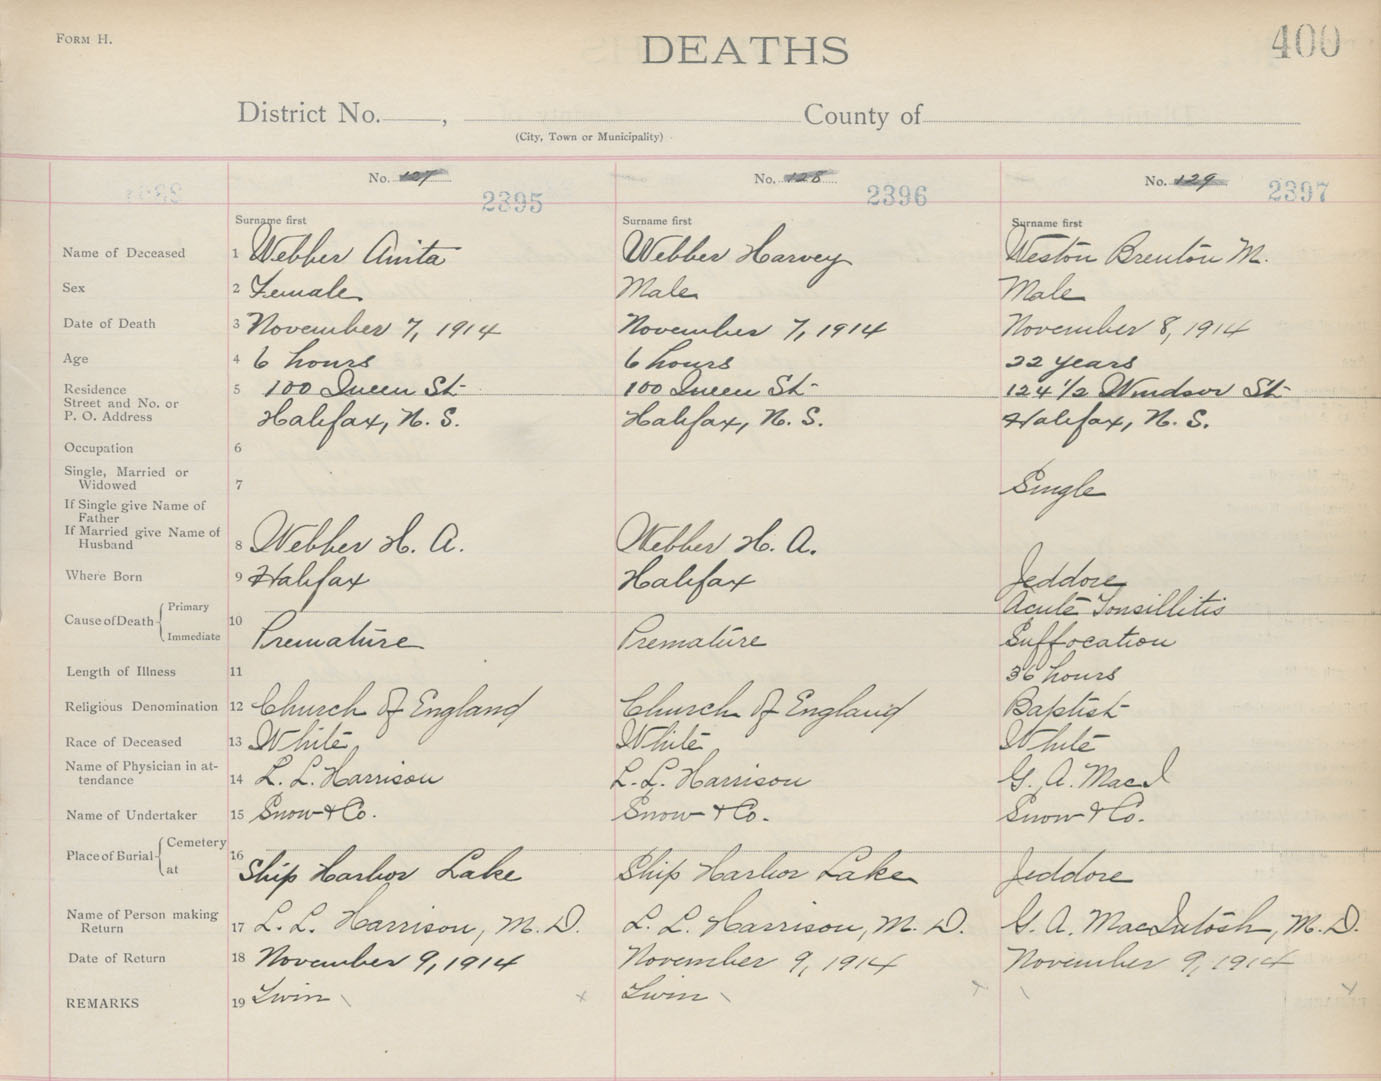 FORM H.
DEATHS
400
District No. , County of
(City, Town or Municipality)
No. 127 No. 128 No. 129
2395 2396 2397
Surname first Surname first Surname first
Name of Deceased 1 Webber Anita Webber Harvey Weston Brenton M.
Sex 2 Female Male Male
Date of Death 3 November 7, 1914 November 7, 1914 November 8, 1914
Age 4 6 hours 6 hours 22 years
Residence 5 100 Queen St 100 Queen St 124 1/2 Windsor St
Street and No. or
P. O. Address Halifax, N. S. Halifax, N. S. Halifax, N. S.
Occupation 6
Single, Married or
Widowed 7 Single
If Single give Name of
Father
If Married give Name of
Husband 8 Webber H. A. Webber H. A.
Where Born 9 Halifax Halifax Jeddore
Cause of Death Primary 10 Acute Tonsillitis
Immediate Premature Premature Suffocation
Length of Illness 11 36 hours
Religious Denomination 12 Church of England Church of England Baptist
Race of Deceased 13 White White White
Name of Physician in at-
tendance 14 L. L. Harrison L. L. Harrison G. A. MacI
Name of Undertaker 15 Snow & Co. Snow & Co. Snow & Co.
Place of Burial Cemetery 16
at Ship Harbor Lake Ship Harbor Lake Jeddore
Name of Person making
Return 17 L. L. Harrison, M. D. L. L. Harrison, M. D. G. A. MacIntosh, M. D.
Date of Return 18 November 9, 1914 November 9, 1914 November 9, 1914
REMARKS 19 Twin Twin